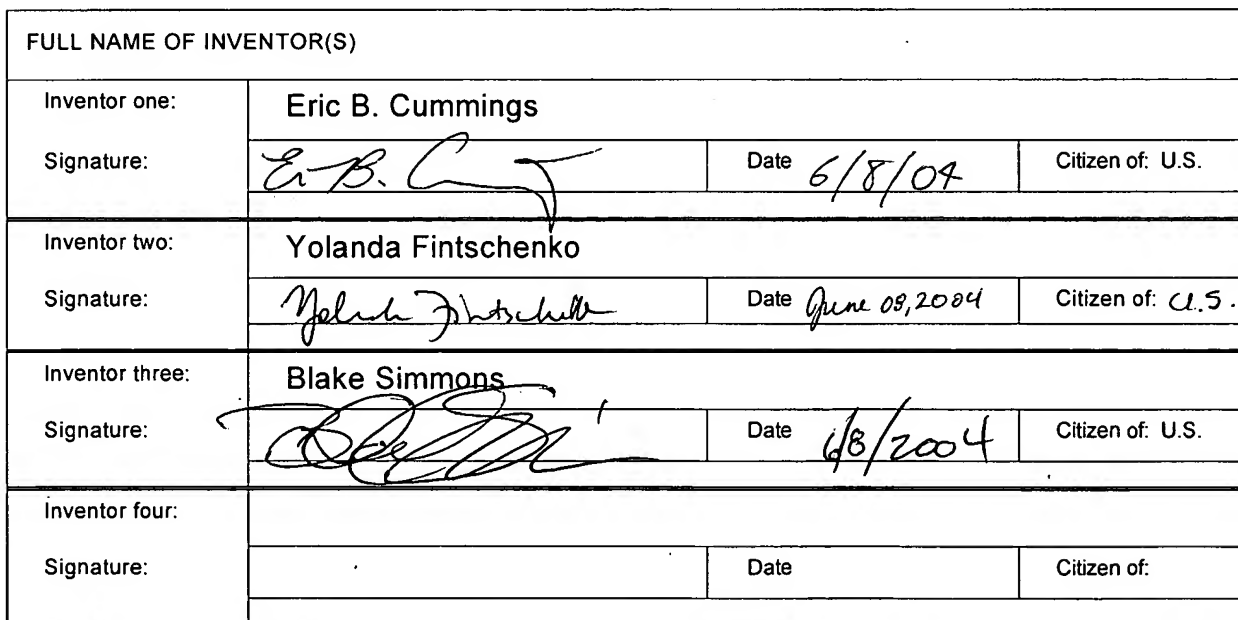 FULL NAME OF INVENTOR(S)
Inventor one: Eric B. Cummings
Signature: Date 6/8/04 Citizen of: U.S.
Inventor two: Yolanda Fintschenko
Signature: Yolanda Fintschenko Date June 08, 2004 Citizen of: U.S.
Inventor three: Blake Simmons
Signature: Date 6/8/2004 Citizen of: U.S.
Inventor four:
Signature: Date Citizen of: